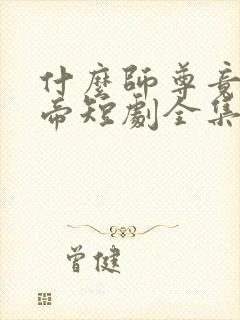 什麼師尊竟
帝短劇全集
曾健